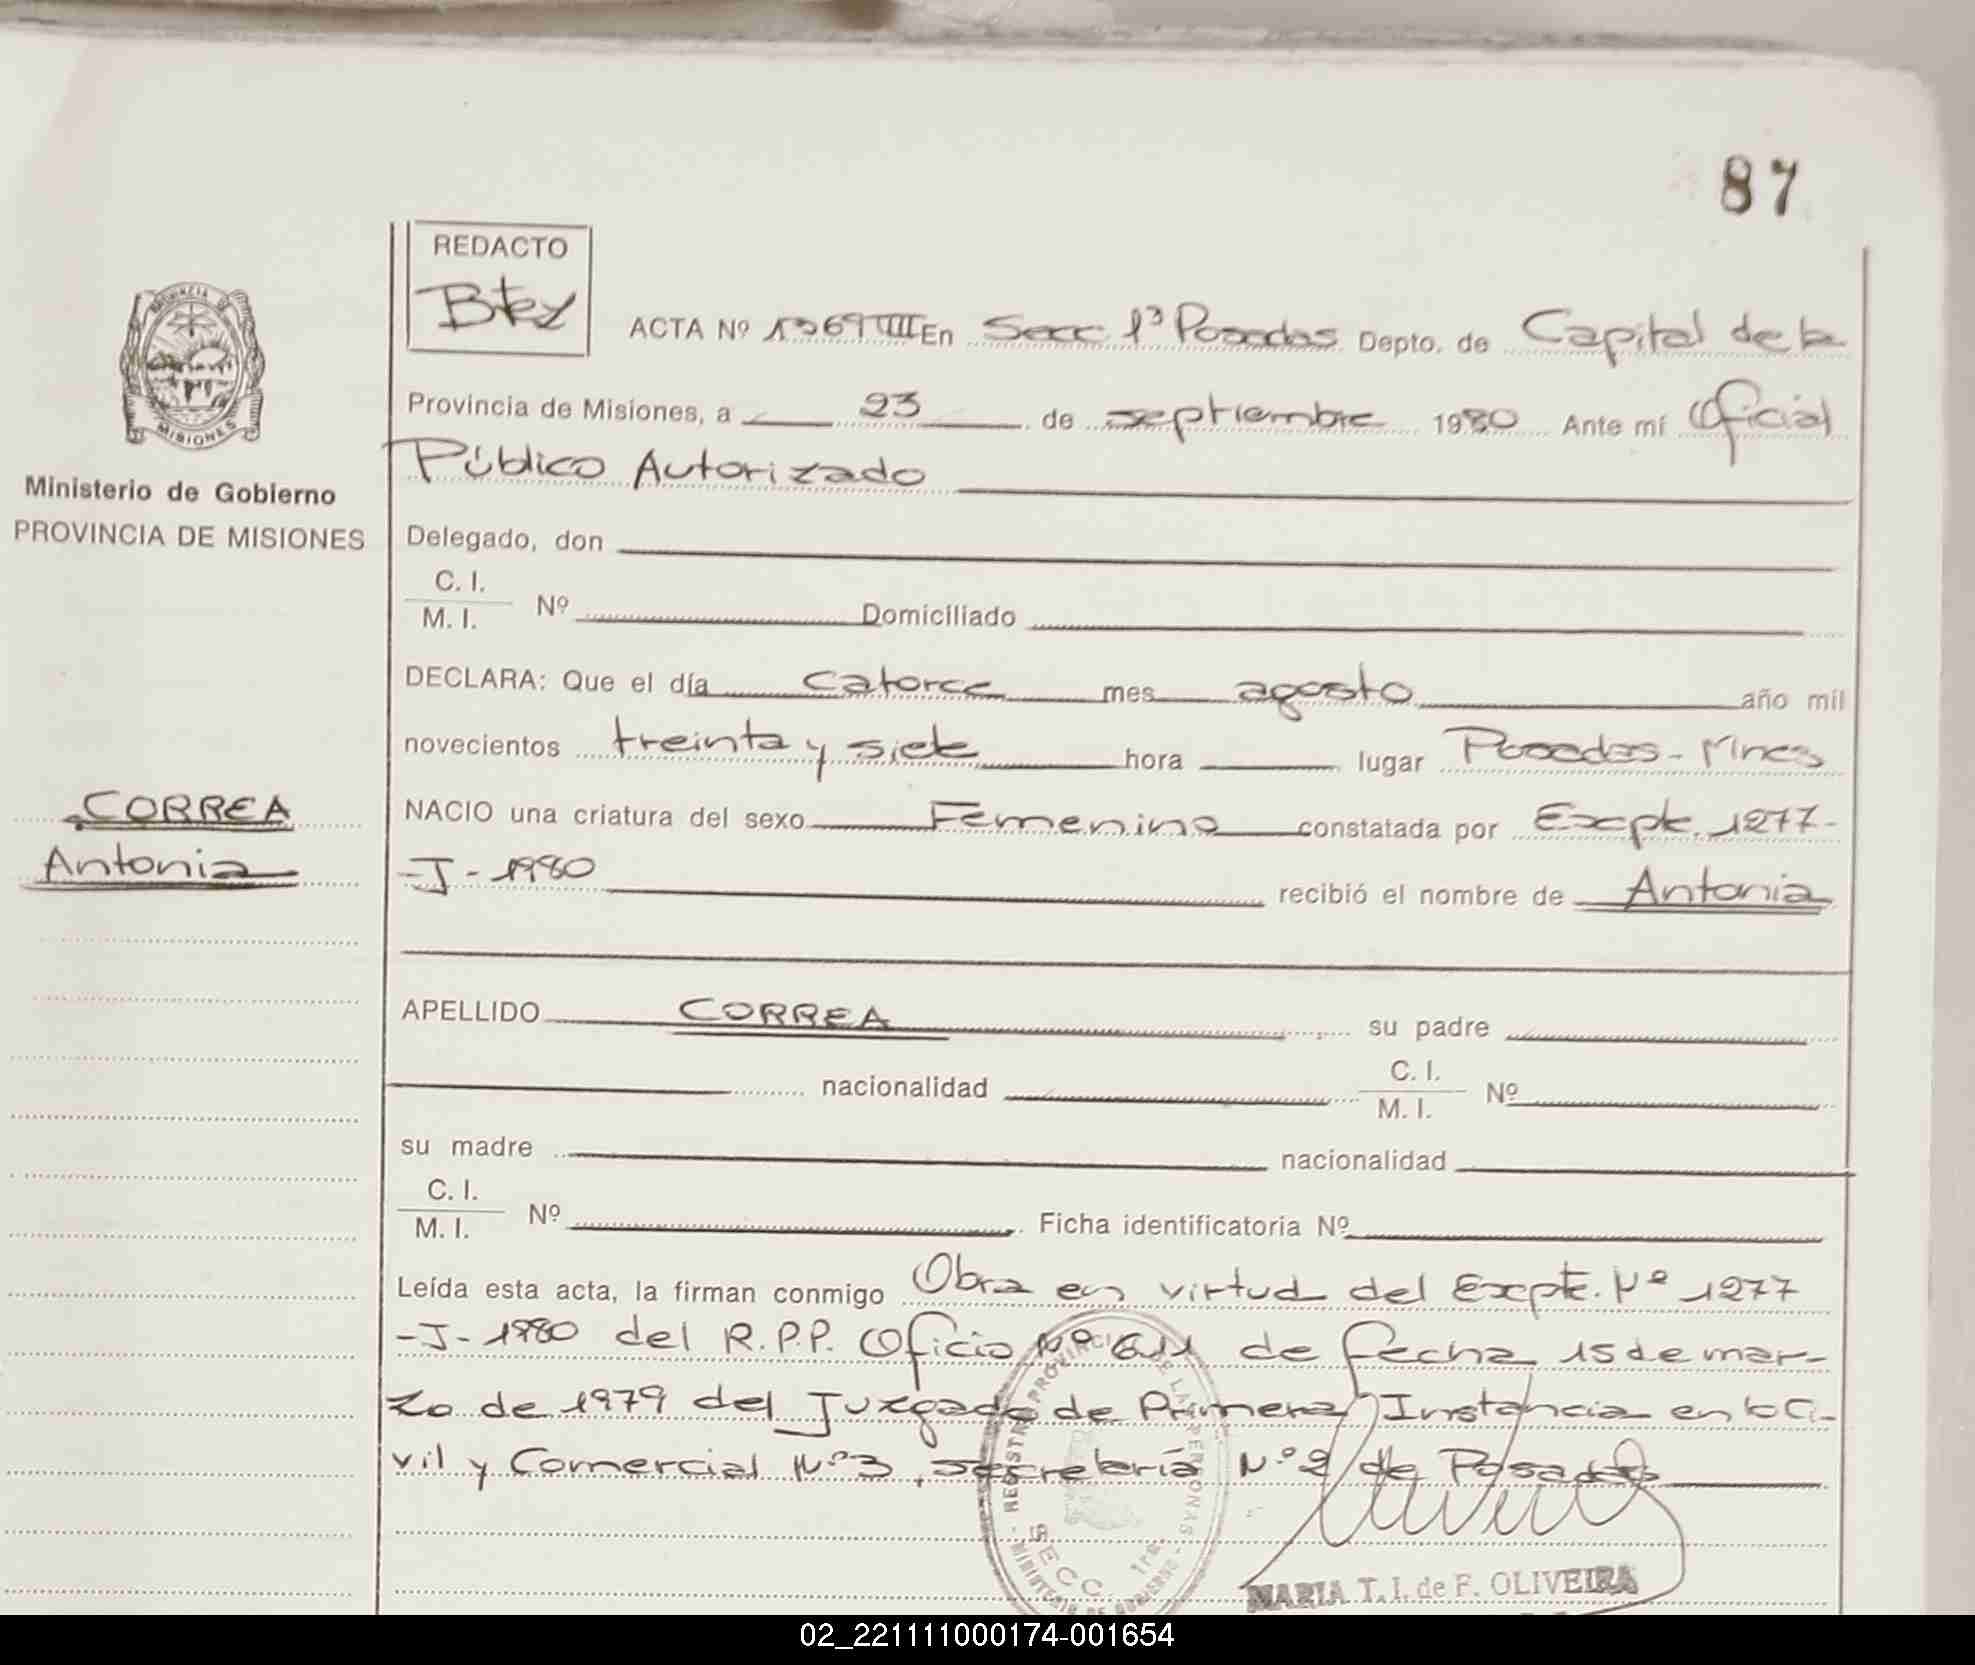 87
REDACTO
ACTA Nº 1369 III En Secc 1ª Posadas Depto. de Capital de la
Provincia de Misiones, a 23 de septiembre 1980 Ante mí Oficial
Público Autorizado
Ministerio de Gobierno
PROVINCIA DE MISIONES
Delegado, don
C. I.
M. I. Nº Domiciliado
DECLARA: Que el día catorce mes agosto año mil
novecientos treinta y siete hora lugar Posadas - Mnes
CORREA
Antonia
NACIO una criatura del sexo Femenino constatada por Excpte. 1277-
-J-1980 recibió el nombre de Antonia
APELLIDO CORREA su padre
nacionalidad C. I. M. I. Nº
su madre nacionalidad
C. I.
M. I. Nº Ficha identificatoria Nº
Leída esta acta, la firman conmigo Obra en virtud del Excpte. Nº 1277
-J-1980 del R.P.P. Oficio Nº 611 de fecha 15 de mar-
zo de 1979 del Juzgado de Primera Instancia en lo Ci-
vil y Comercial Nº 3, secretaría Nº 2 de Posadas
REGISTRO PROVINCIAL DE LAS PERSONAS
SECC. 1ra.
MINISTERIO DE GOBIERNO
MARIA T. I. de F. OLIVEIRA
02_221111000174-001654